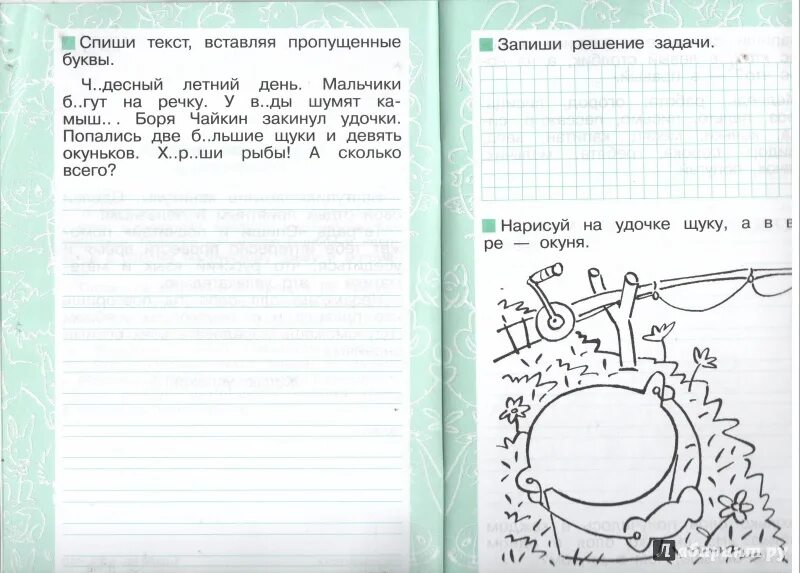 Спиши текст, вставляя пропущенные
буквы.
Ч..десный летний день. Мальчики
б..гут на речку. У в..ды шумят ка-
мыш.. . Боря Чайкин закинул удочки.
Попались две б..льшие щуки и девять
окуньков. Х..р..ши рыбы! А сколько
всего?
Запиши решение задачи.
Нарисуй на удочке щуку, а в в
ре — окуня.
Лабиринт.ру